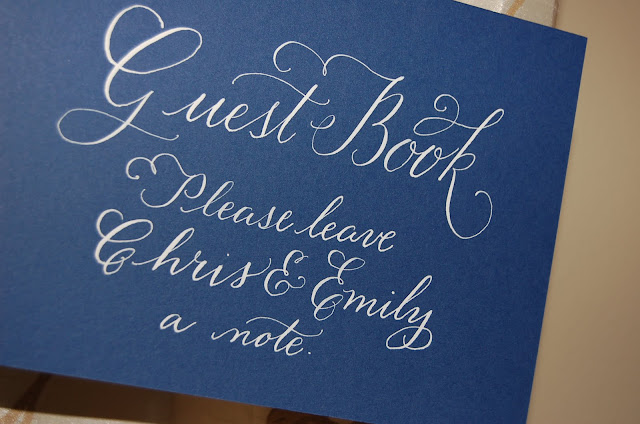 Guest Book
Please leave
Chris & Emily
a note.